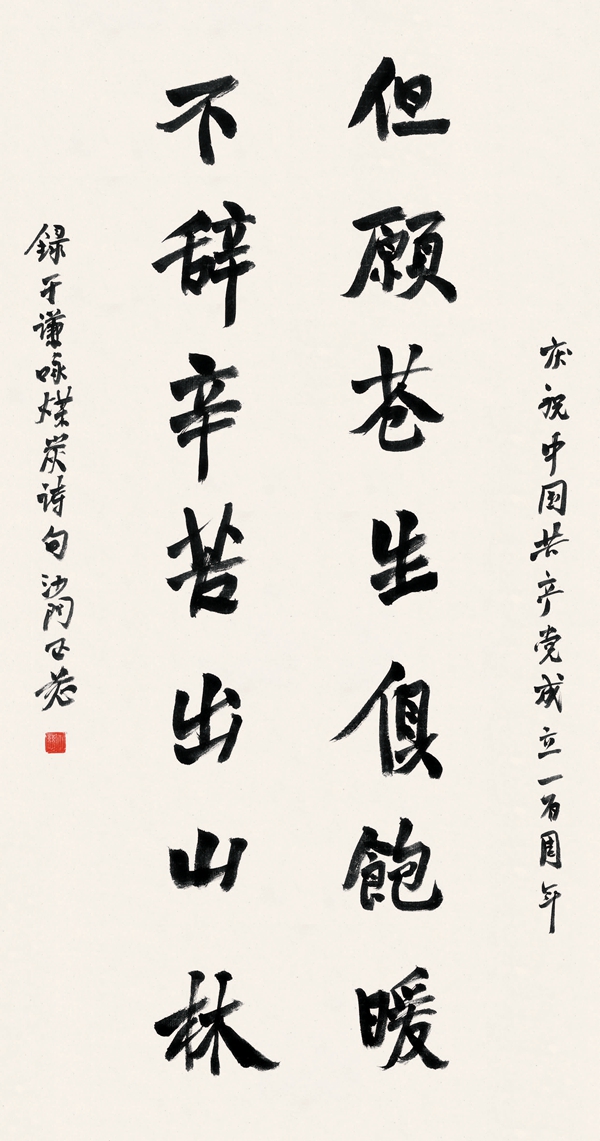 庆祝中国共产党成立一百周年
但愿苍生俱饱暖
不辞辛苦出山林
錄于谦咏煤炭诗句 沙門